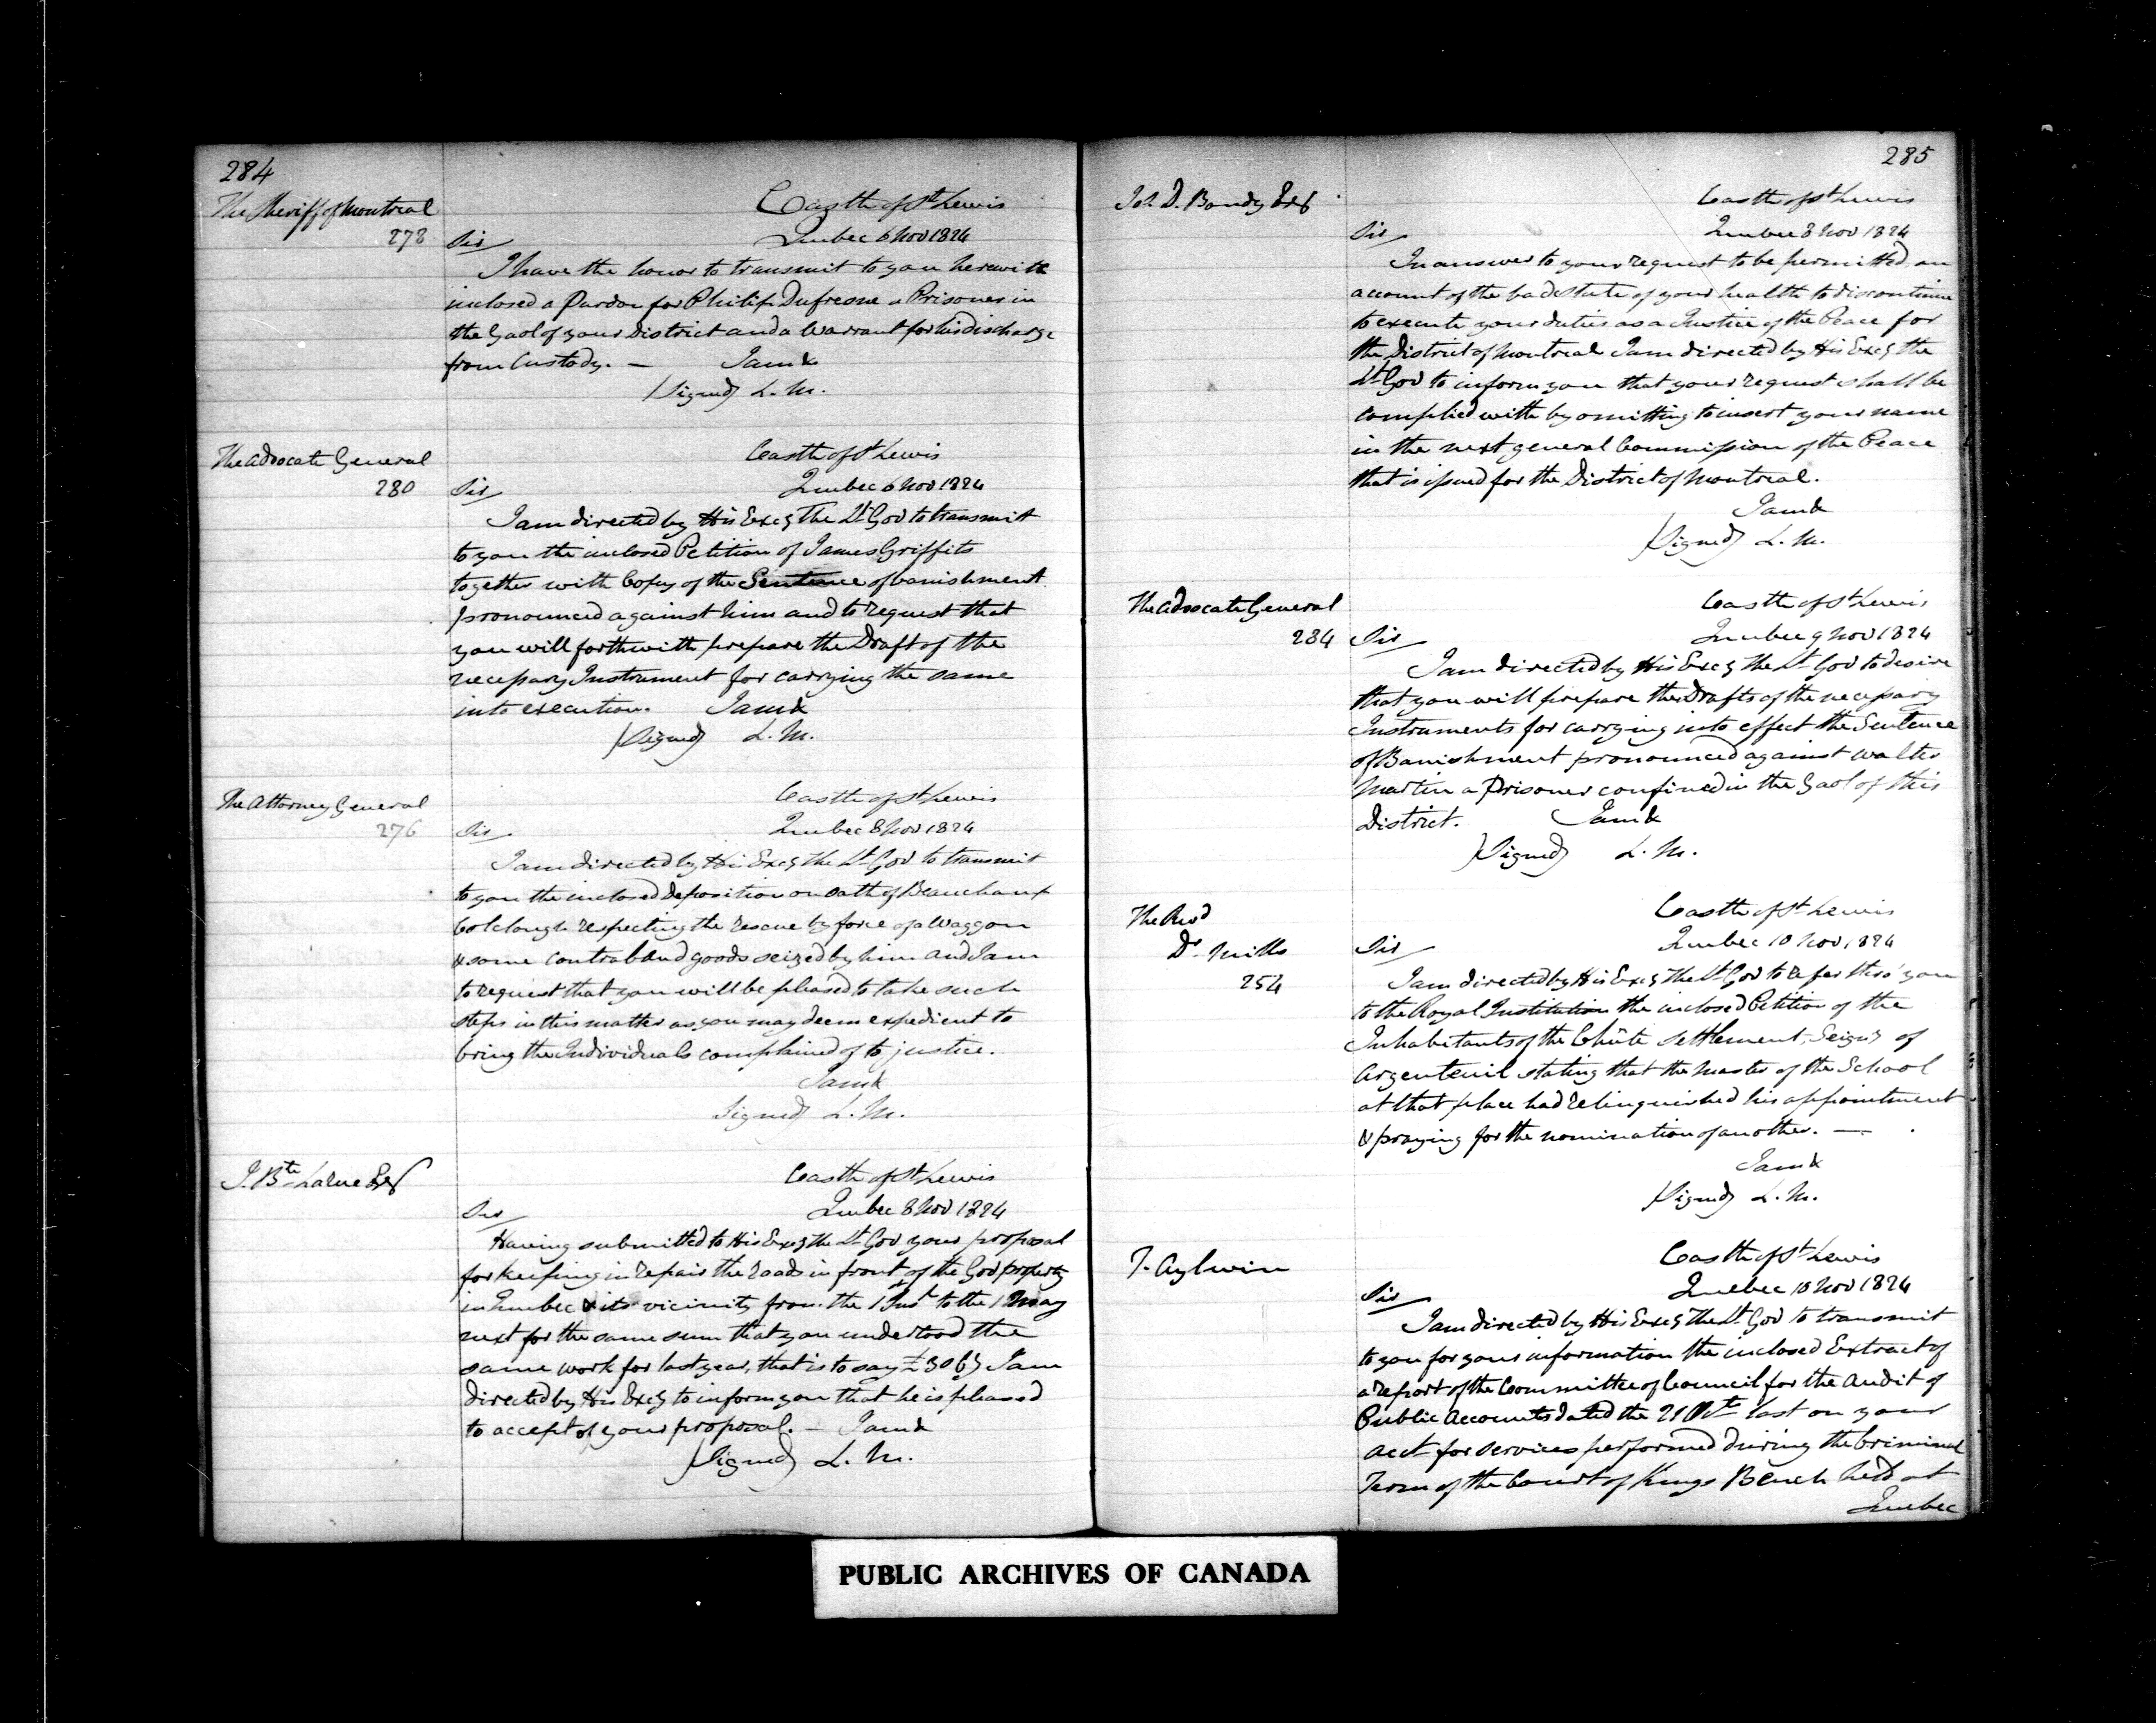 284
The Sheriff of Montreal
278
Castle of St Lewis
Quebec 6 Nov 1824
Sir
I have the honor to transmit to you herewith
inclosed a Pardon for Philip Dufresne a Prisoner in
the Gaol of your District and a Warrant for his discharge
from Custody. — I am &
(Signed) L. M.
The Advocate General
280
Castle of St Lewis
Quebec 6 Nov 1824
Sir
I am directed by His Excy The Lt Gov to transmit
to you the inclosed Petition of James Griffits
together with Copy of the Sentence of banishment
pronounced against him and to request that
you will forthwith prepare the Draft of the
necessary Instrument for carrying the same
into execution. I am &
(Signed) L. M.
The Attorney General
276
Castle of St Lewis
Quebec 8 Nov 1824
Sir
I am directed by His Excy the Lt Gov to transmit
to you the inclosed deposition on oath of Beauchamp
Colclough respecting the rescue by force of a Waggon
& some contraband goods seized by him and I am
to request that you will be pleased to take such
steps in this matter as you may deem expedient to
bring the Individuals complained of to justice.
I am &
Signed) L. M.
J. Bte Larue Esqr
Castle of St Lewis
Quebec 8 Nov 1824
Sir
Having submitted to His Excy the Lt Gov your proposal
for keeping in repair the roads in front of the Gov property
in Quebec & its vicinity from the 1 Inst to the 1 May
next for the same sum that you understood the
same work for last year, that is to say I am
directed by His Excy to inform you that he is pleased
to accept of your proposal. — I am &
(Signed) L. M.
285
Jos. D. Bondy Esqr
Castle of St Lewis
Quebec 8 Nov 1824
Sir
In answer to your request to be permitted, on
account of the bad state of your health to discontinue
to execute your duties as a Justice of the Peace for
the District of Montreal I am directed by His Excy the
Lt Gov to inform you that your request shall be
complied with by omitting to insert your name
in the next general Commission of the Peace
that is issued for the District of Montreal.
I am &
(Signed) L. M.
The Advocate General
284
Castle of St Lewis
Quebec 9 Nov 1824
Sir
I am directed by His Excy the Lt Gov to desire
that you will prepare the Drafts of the necessary
Instruments for carrying into effect the Sentence
of Banishment pronounced against Walter
Martin a Prisoner confined in the Gaol of this
District. I am &
(Signed) L. M.
The Revd
Dr Mills
254
Castle of St Lewis
Quebec 10 Nov 1824
Sir
I am directed by His Excy The Lt Gov to refer thro' you
to the Royal Institution the inclosed Petition of the
Inhabitants of the Chûte settlement, Seigy of
Argenteuil stating that the Master of the School
at that place had relinquished his appointment
& praying for the nomination of another. —
I am &
(Signed) L. M.
T. Aylwin
Castle of St Lewis
Quebec 10 Nov 1824
Sir
I am directed by His Excy The Lt Gov to transmit
to you for your information the inclosed Extract of
a report of the Committee of Council for the Audit of
Public Accounts dated the 21 Octr last on your
acct for services performed during the Criminal
Term of the Court of Kings Bench held at
Quebec
PUBLIC ARCHIVES OF CANADA